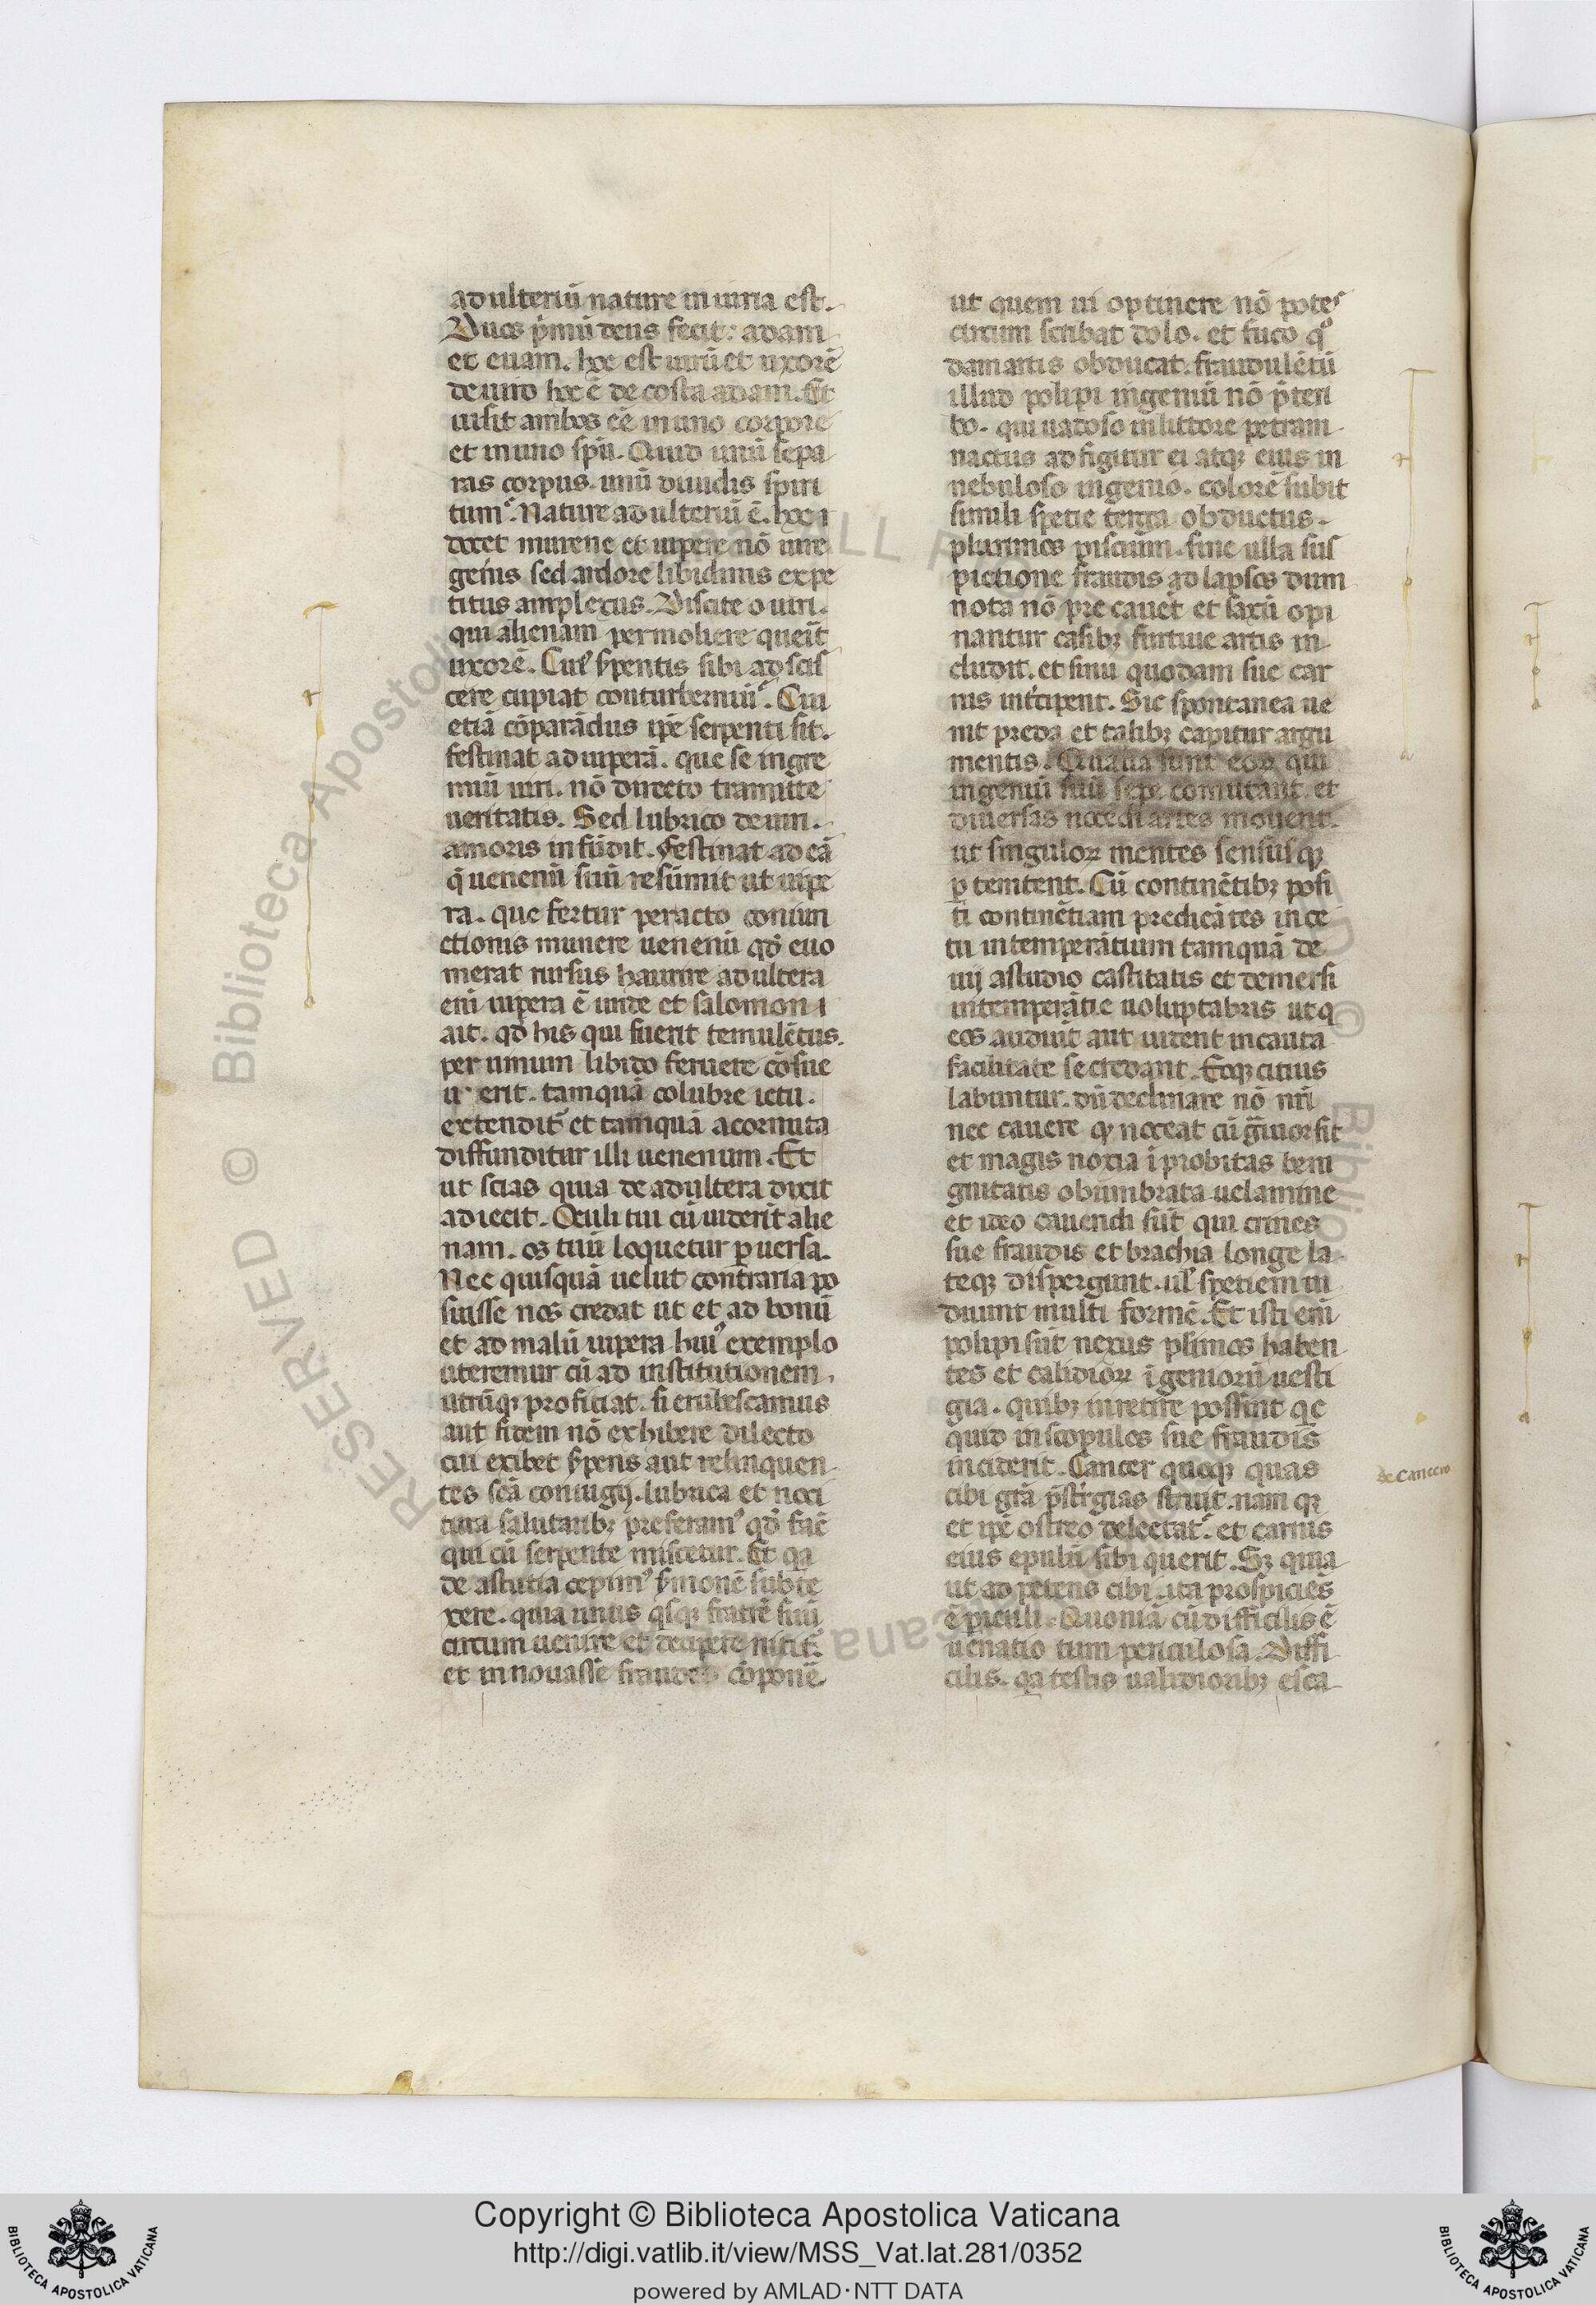 adulteriū nature iniuria est.
Duos p̄mū deus fecit: adam
et euam. hoc est uirū et uxorē
de uiro hoc ē de costa adam. Et
iusit ambos eē in uno corpore
et in uno spū. Quid unū sepa
ras corpus. unū diuidis spiri
tum. Nature adulteriū ē. hoc
docet murene et uipere nō iure
geñis sed ardore libidinis expe
titus amplexus. Discite o uiri.
qui alienam permoliere querūt
uxorē. Cuiꝰ s̄pentis sibi adscis
cere cupiat conturberniū. Cui
etiā cōparādus ip̄e serpenti sit.
festinat ad uiperā. que se in gre
miū uiri. nō directo tramitte
ueritatis. Sed lubrico deuii.
amoris infūdit. festinat ad eā
q̄ uenenū suū resūmit ut uipe
ra. que fertur peracto coniun
ctionis munere uenenū qd̄ euo
merat rursus haurire adultera
eni uipera ē unde et salomon
ait. qd̄ his qui fuerit temulētus.
per uinum libido feruere cōsue
u erit. tamquā colubre ictu.
extendit᷑ et tamquā a cornuta
diffunditur illi uenenum. Et
ut scias quia de adultera dixit
adiecit. Oculi tui cū uiderit alie
nam. os tuū loquetur ꝑuersa.
Nec quisquā uelut contraria po
suisse nos credat ut et ad bonū
et ad malū uipera huiꝰ exemplo
uteremur cū ad institutionem
utrūqꝫ proficiat. si erubescamus
aut fidem nō exhibere dilecto
cui exibet s̄pens aut relinquen
tes sc̄a coniugij. lubrica et noci
tura salutaribꝫ preferamꝰ qd̄ facit
qui cū serpente miscetur. Et qa
de astutia cepimꝰ s̄monē subte
xere. quia unus qsqꝫ fratrē suū
circum uenire et decipere nitit᷑
et in nouasse fraudes cōponē
ut quem ui optinere nō potes
circum scribat dolo. et fuco qͦ
dam artis obducat. fraudulētū
illud polipi ingeniū nō p̄teri
bo. qui uadoso in littore petram
nactus adfigitur ei atqꝫ eius in
nebuloso ingenio. colorē subit
simili specie terga obductus.
plurimos piscium. sine ulla sus
picione fraudis adlapsos dum
nota nō precauet et saxū opi
nantur casibꝫ furtiue artis in
cludit. et sinu quodam sue car
nis int̄cipent. Sic spontanea ue
nit preda et talibꝫ capitur argu
mentis. Qualia sunt eoꝝ qui
ingeniū suū sepe comutant. et
diuersas nocēdi artes mouent.
ut singuloꝝ mentes sensusqꝫ
ꝑtemtent. Cū continētibꝫ posi
ti continētiam predicātes in ce
tu intemperātium tamquā de
uij a studio castitatis et demersi
intemperātie uoluptabris ut q
eos audiūt aut uident incauta
facilitate se credant. Eoqꝫ citius
labuntur. dū declinare nō nr̄i
nec cauere qꝫ noceat cū g̃uior sit
et magis noxia iprobitas beni
gnitatis obumbrata uelamine
et ideo cauendi sūt qui crines
sue fraudis et brachia longe la
teqꝫ dispergunt. uł speciem in
duunt multi formē. Et isti eni
polipi sūt nexus plīmos haben
tes et calidioꝝ igenioꝝ uesti
gia. quibꝫ inretire possint qc
quid in scopulos sue fraudis
inciderit. Cancer quoqꝫ quas
cibi gr̄a p̄strigias struit. nam qꝫ
et ip̄e ostreo delectat᷑. et carnis
eius epulū sibi querit. Sꝫ quia
ut adpetens cibi. ita prospiciēs
ē piculi. Quoniā cū difficilis ē
uenatio tum periculosa. Diffi
cilis. qa testis ualidioribꝫ esca
de cancero
Copyright © Biblioteca Apostolica Vaticana
http://digi.vatlib.it/view/MSS_Vat.lat.281/0352
powered by AMLAD·NTT DATA
BIBLIOTECA APOSTOLICA VATICANA
BIBLIOTECA APOSTOLICA VATICANA